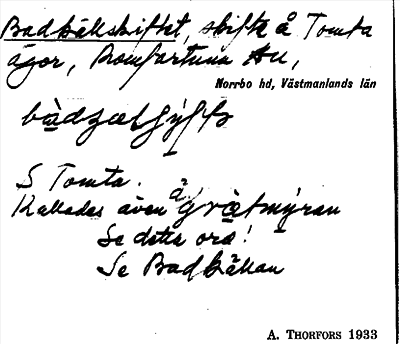 Badkällskiftet, skifte å Tomta
ägor, Romfartuna sn,
Norrbo hd, Västmanlands län
S Tomta.
Kallades även grätmýran
Se detta ord!
Se Badkällan
A. THORFORS 1933